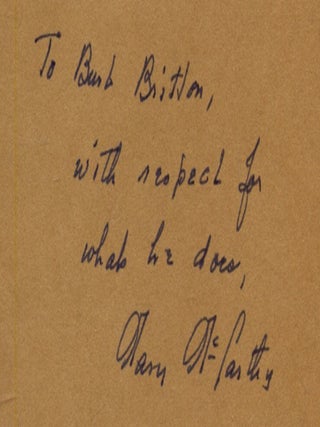 To Burt Britton,
with respect for
what he does,
Mary McCarthy